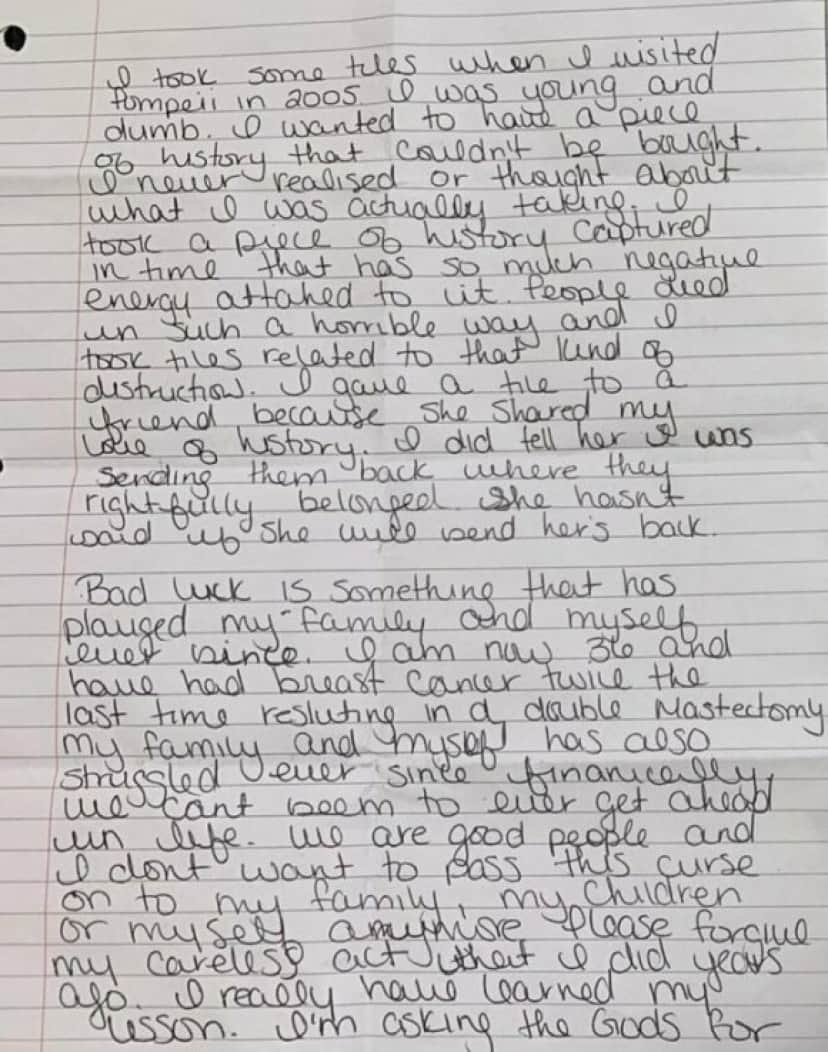 I took some tiles when I visited
Pompeii in 2005. I was young and
dumb. I wanted to have a piece
of history that couldn't be bought.
I never realised or thought about
what I was actually taking. I
took a piece of history captured
in time that has so much negative
energy attahed to it. People died
in such a horrible way and I
took tiles related to that kind of
distruction. I gave a tile to a
friend because she shared my
love of history. I did tell her I was
sending them back where they
rightfully belonged. She hasn't
said if she will send her's back.
Bad luck is something that has
plauged my family and myself
ever since. I am now 36 and
have had breast cancer twice the
last time resluting in a double Mastectomy
my family and myself has also
struggled ever since financially,
we cant seem to ever get ahead
in life. We are good people and
I dont want to pass this curse
on to my family, my children
or myself anymore. Please forgive
my careless act that I did years
ago. I really have learned my
lesson. I'm asking the Gods for